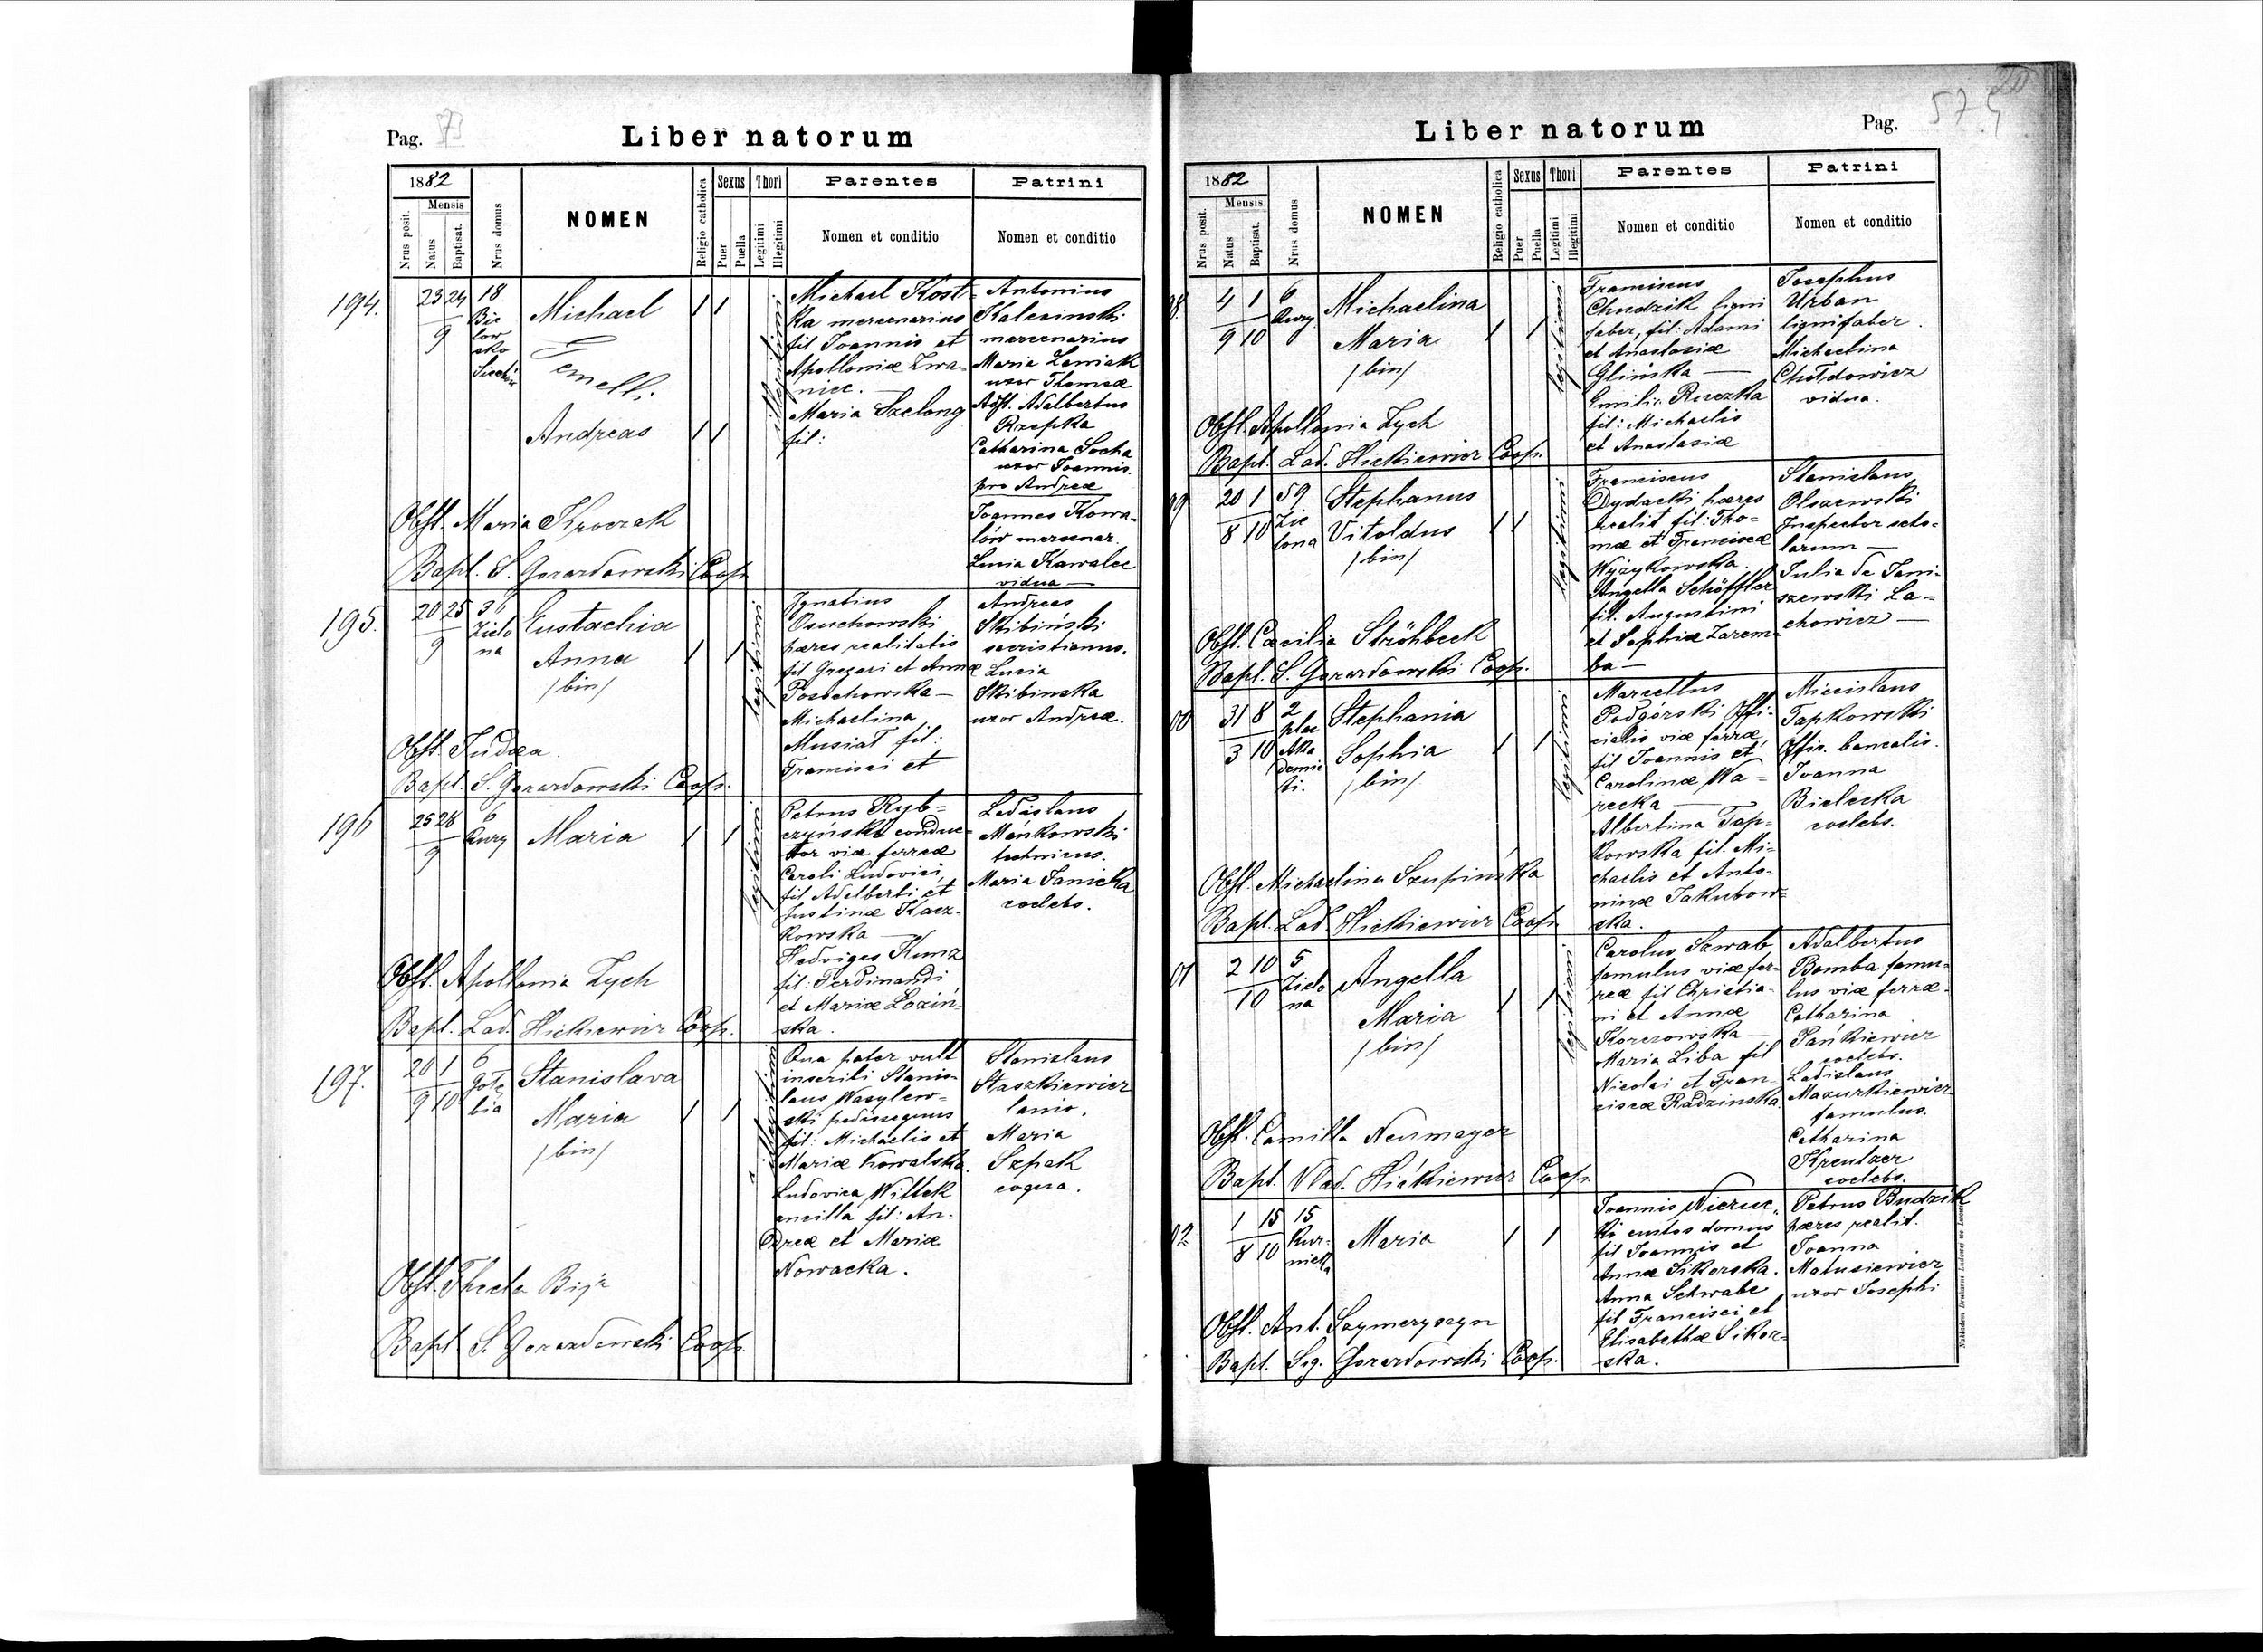 Pag.
Liber natorum
1882
Mensis
Nrus posit.
Natus
Baptisat.
Nrus domus
NOMEN
Religio catholica
Sexus
Puer
Puella
Thori
Legitimi
Illegitimi
Parentes
Nomen et conditio
Patrini
Nomen et conditio
194.
23 24
9
18
Bie
low
ska
Michael
Gemelli.
Andreas
1 1
1 1
illegitimi
Michael Kost-
ka mercenarius
fil Joannis et
Apolloniæ Iwa-
niec. —
Maria Szelong
fil:
Antonius
Kalesinski
mercenarius
Maria Laniak
uxor Thomæ
Adst. Adalbertus
Rzepka
Catharina Socha
uxor Joannis.
pro Andreæ
Joannes Kowa-
lów mercenar.
Lucia Kawalec
vidua —
Obst. Maria Kroczak
Bapt. S. Gorazdowski Coop.
195.
20 25
9
36
Zielo
na
Eustachia
Anna
/bin/
1 1
legitimi
Ignatius
Osuchowski
hæres realitatis
fil Gregori et Annæ
Posuchowska —
Michaelina
Musiał fil:
Francisci et
Andreas
Skibinski
sacristianus.
Lucia
Skibinska
uxor Andreæ.
Obst. Judæa.
Bapt. S. Gorazdowski Coop.
196
25 28
9
6
Kury
Maria
1 1
legitimi
Petrus Ryb-
czyński conduc-
tor viæ ferreæ
Caroli Ludovici,
fil Adalberti et
Justinæ Kacz-
kowska —
Hedviges Kunz
fil: Ferdinandi
et Mariæ Loziń-
ska.
Ladislaus
Mańkowski
technicus.
Maria Janicka
coelebs.
Obst. Apollonia Zych
Bapt. Lad. Hićkiewicz Coop.
197.
20 1
9 10
6
Gołę
bia
Stanislava
Maria
/bin/
1 1
illegitimi
Qua pater vult
inscribi Stanis-
laus Wasylew-
ski pedissequus
fil: Michaelis et
Mariæ Kowalska.
Ludovica Wittek
ancilla fil: An-
dreæ et Mariæ
Nowacka.
Stanislaus
Staszkiewicz
lanio.
Maria
Szpak
coqua.
Obst. Thecla
Bapt. S. Gorazdowski Coop.
Liber natorum
Pag.
57
1882
Mensis
Nrus posit.
Natus
Baptisat.
Nrus domus
NOMEN
Religio catholica
Sexus
Puer
Puella
Thori
Legitimi
Illegitimi
Parentes
Nomen et conditio
Patrini
Nomen et conditio
98.
4 1
9 10
6
Kury
Michaelina
Maria
/bin/
1 1
legitimi
Franciscus
Chudzik ligni
faber, fil: Adami
et Anastasiæ
Glińska —
Emilia Ruczka
fil: Michaelis
et Anastasiæ
Josephus
Urban
lignifaber.
Michaelina
Chołdowicz
vidua.
Obst. Apollonia Zych
Bapt. Lad. Hićkiewicz Coop.
99
20 1
8 10
59
Zie
lona
Stephanus
Vitoldus
/bin/
1 1
legitimi
Franciscus
Dydacki hæres
realit fil: Tho-
mæ et Franciscæ
Wyżykowska.
Angella Schöffler
fil. Augustini
et Sophiæ Zarem-
ba —
Stanislaus
Olszewski
Inspector scho-
larum —
Julia de Jani-
szewski La-
chowicz —
Obst. Cæcilia Ströhbeck
Bapt. S. Gorazdowski Coop.
00
31 8
3 10
2
plac
Aka
demic
ki.
Stephania
Sophia
/bin/
1 1
legitimi
Marcellus
Podgórski Offi-
cialis viæ ferræ,
fil Joannis et
Carolinæ Wa-
recka —
Albertina Tap-
kowska fil. Mi-
chaelis et Anto-
ninæ Jakubow-
ska.
Miecislaus
Tapkowski
Offic. bancalis.
Joanna
Bielecka
coelebs.
Obst. Michaelina Szupińska
Bapt. Lad. Hićkiewicz Coop.
01
2 10
10
5
Zielo
na
Angella
Maria
/bin/
1 1
legitimi
Carolus Szwab
famulus viæ fer-
reæ fil Christia-
ni et Annæ
Korczowska —
Maria Liba fil
Nicolai et Fran-
ciscæ Radzinska.
Adalbertus
Bomba famu-
lus viæ ferræ.
Catharina
Pańkiewicz
coelebs.
Ladislaus
Mazurkiewicz
famulus.
Catharina
Kreutzer
coelebs.
Obst. Camilla Neumayer
Bapt. Vlad. Hićkiewicz Coop.
02
1 15
8 10
15
Kur-
nicka
Maria
1 1
Joannis Nieruc-
ki custos domus
fil Joannis et
Annæ Sikorska.
Anna Schwabe
fil Francisci et
Elisabethæ Sikor-
ska.
Petrus Budzik
hæres realit.
Joanna
Matusiewicz
uxor Josephi
Obst. Ant. Szymeryszyn
Bapt. Sig. Gorazdowski Coop.